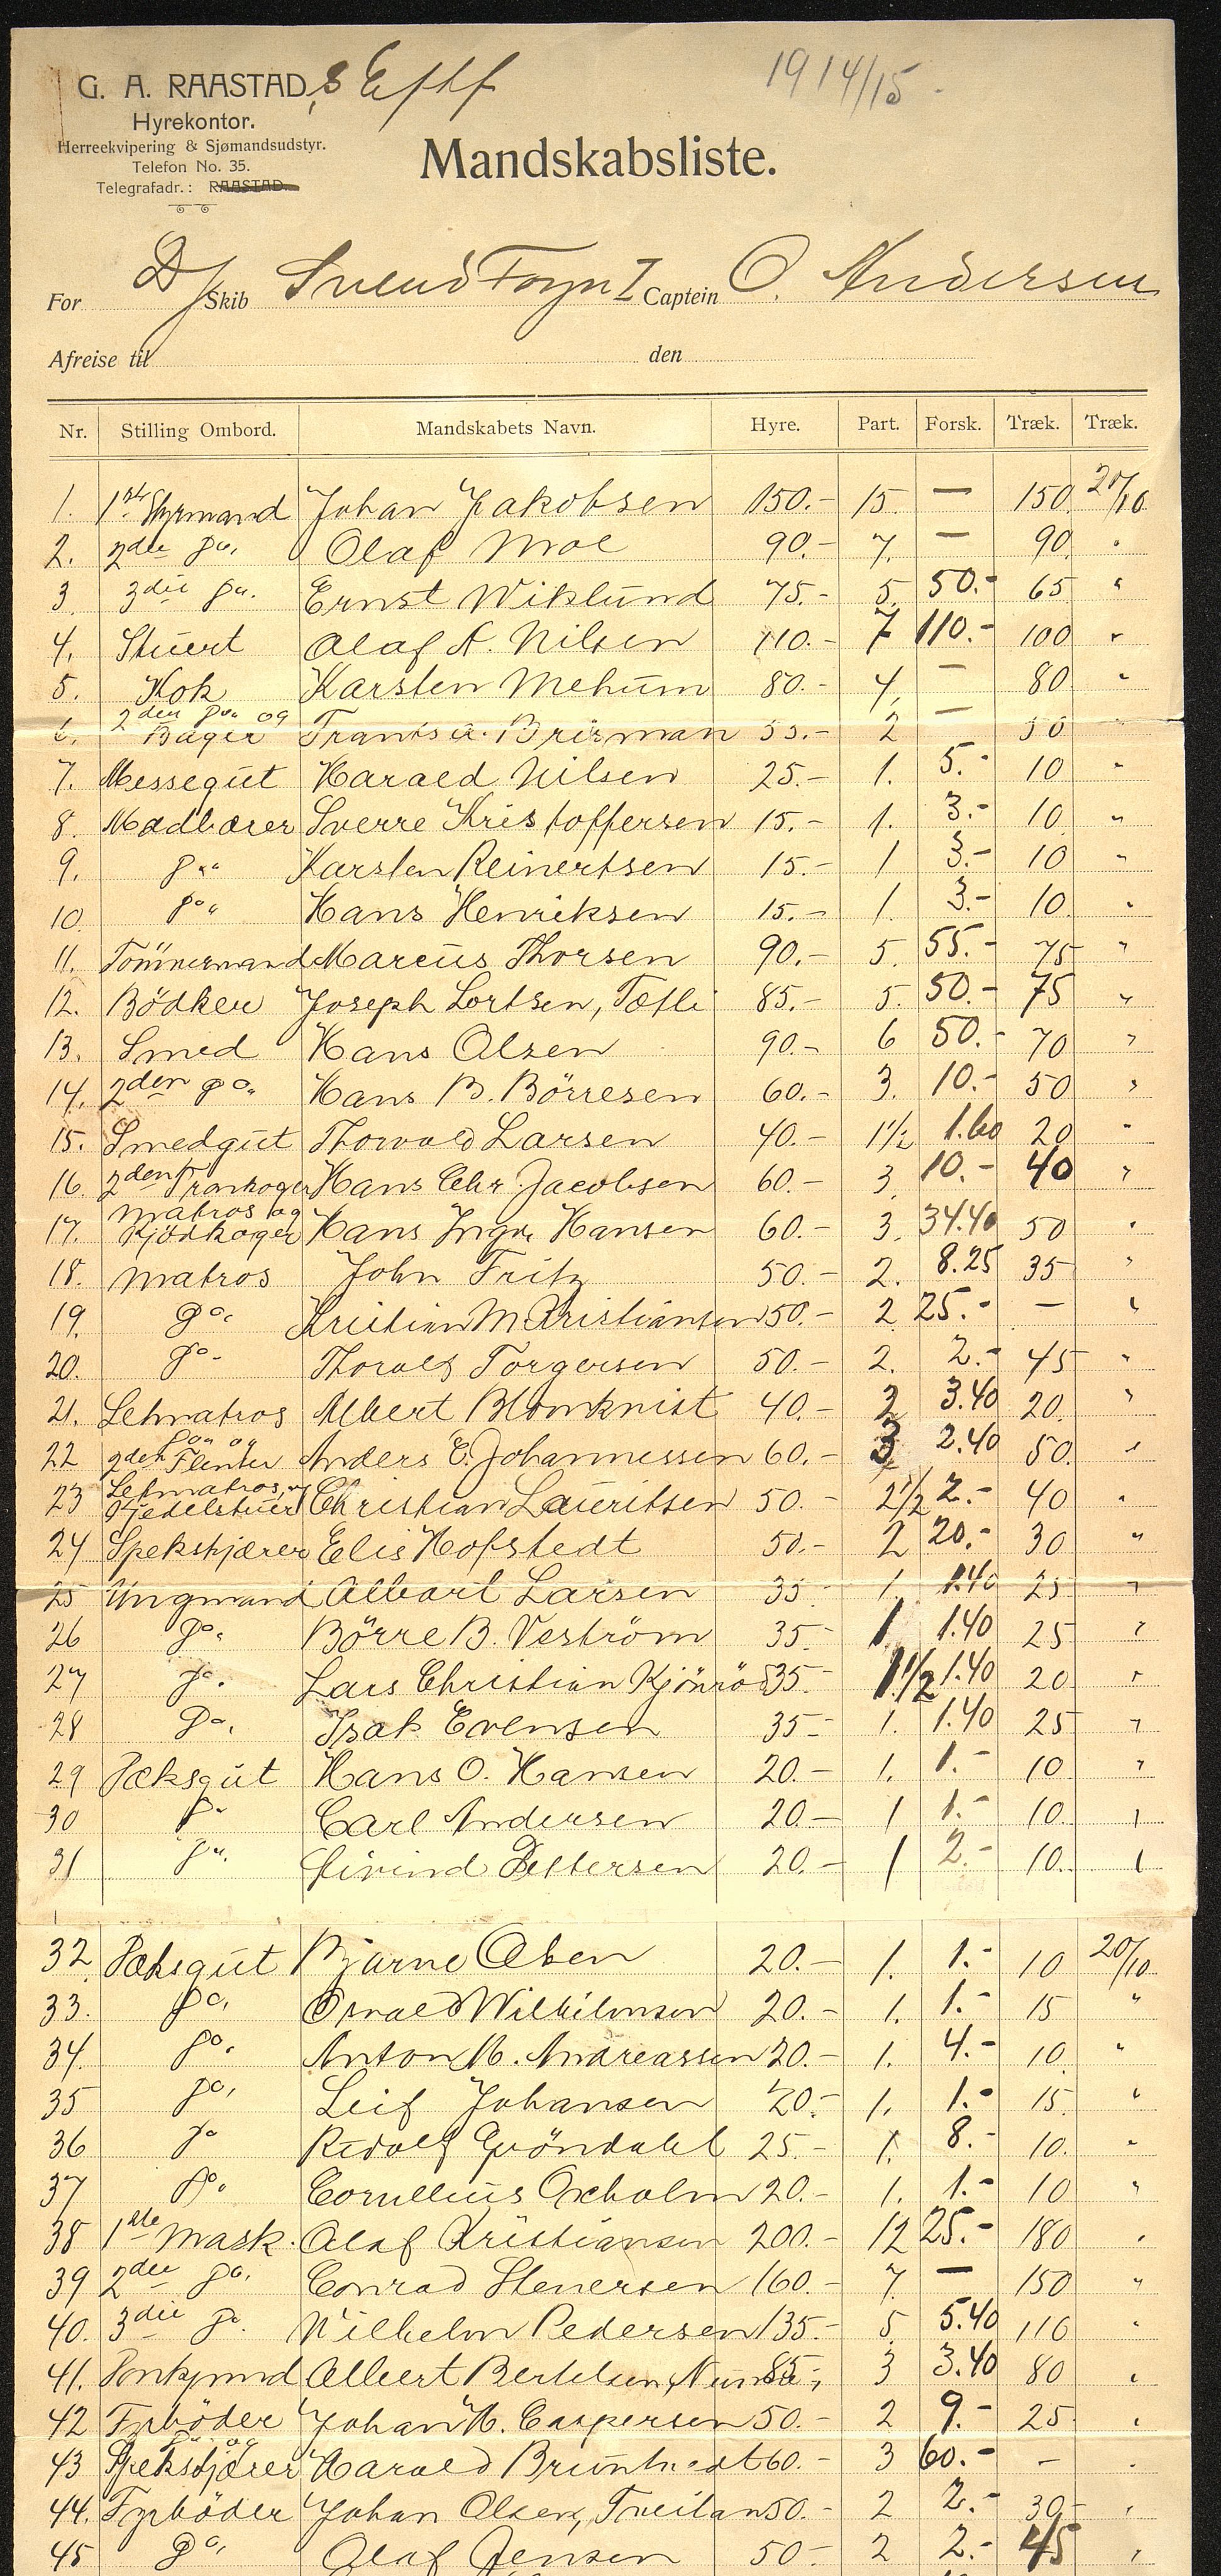 G. A. RAASTAD's Eftf
1914/15.
Hyrekontor.
Herreekvipering & Sjømandsudstyr.
Telefon No. 35.
Telegrafadr.: RAASTAD.
Mandskabsliste.
For D/Skib Svend Foyn I Captein O. Andersen
Afreise til den
Nr. Stilling Ombord. Mandskabets Navn. Hyre. Part. Forsk. Træk. Træk.
1. 1ste Styrmand Johan Jakobsen 150.- 15. — 150. 20/10
2. 2den do. Olaf Moe 90.- 7. — 90. "
3. 3die do. Ernst Wiklund 75.- 5. 50.- 65 "
4. Stuert Olaf A. Nilsen 110.- 7 110.- 100 "
5. Kok Karsten Mehum 80.- 4. — 80 "
6. 2den do. og Bager 55.- 2 — 50 "
7. Messegut Harald Nilsen 25.- 1. 5.- 10 "
8. Madbærer Sverre Kristoffersen 15.- 1. 3.- 10 "
9. do. Karsten Reinertsen 15.- 1 3.- 10 "
10. do. Hans Henriksen 15.- 1. 3.- 10. "
11. Tömmermand Marcus Thorsen 90.- 5. 55.- 75 "
12. Bödker Joseph Lortsen, 85.- 5. 50.- 75 "
13. Smed Hans Olsen 90.- 6 50.- 70 "
14. 2den do. Hans B. Börresen 60.- 3. 10.- 50 "
15. Smedgut Thorvald Larsen 40.- 1½ 1.60 20 "
16. 2den Trankoger Hans Chr. Jacobsen 60.- 3. 10.- 40 "
17. Matros og Kjödkoger Hans Ingv. Hansen 60.- 3. 34.40 50 "
18. Matros John Fritz 50.- 2. 8.25 35 "
19. do. Kristian M Kristiansen 50.- 2 25.- — "
20. do. Thoralf Torgersen 50.- 2. 2.- 45 "
21. Letmatros Albert Blomkvist 40.- 2 3.40 20. "
22 do. og 2den Flenser Anders C. Johannessen 60.- 3 2.40 50. "
23 Letmatros og Christian Lauritsen 50.- 2½ 2.- 40 "
24 Spekskjærer Elis Hofstedt 50.- 2 20.- 30 "
25 Ungmand Albart Larsen 35.- 1. 1.40 25 "
26 do. Börre B. Veström 35.- 1 1.40 25 "
27 do. Lars Christian Kjönröd 35.- 1½ 1.40 20 "
28 do. Isak Evensen 35.- 1. 1.40 25 "
29 Dæksgut Hans O. Hansen 20.- 1. 1.- 10 "
30 do. Carl Andersen 20.- 1 1.- 10. "
31 do. Eivind Pettersen 20.- 1 2.- 10. "
32 Dæksgut Bjarne Olsen 20.- 1. 1.- 10 20/10
33. do. Osvald Wilhelmsen 20.- 1. 1.- 15 "
34. do. Anton M. Andreassen 20.- 1. 4.- 10. "
35 do. Leif Johansen 20.- 1. 1.- 15. "
36 do Rudolf Gröndahl 25.- 1. 8.- 10. "
37 do. Cornelius Oxholm 20.- 1. 1.- 10 "
38 1ste Mask. Olaf Kristiansen 200.- 12 25.- 180 "
39 2den do. Conrad Stenersen 160.- 7. — 150 "
40. 3die do. Wilhelm Pedersen 135.- 5. 5.40 110 "
41. Donkymd Albert Bertelsen, 85.- 3 3.40 80 "
42 Fyrböder Johan M. Caspersen 50.- 2 9.- 25 "
43 do. og Spekskjærer Harald 60.- 3 60.- — "
44. Fyrböder Johan Olsen, Tveitan 50.- 2 2.- 30 "
45 do. Olaf Jensen 50.- 2 2.- 45 "